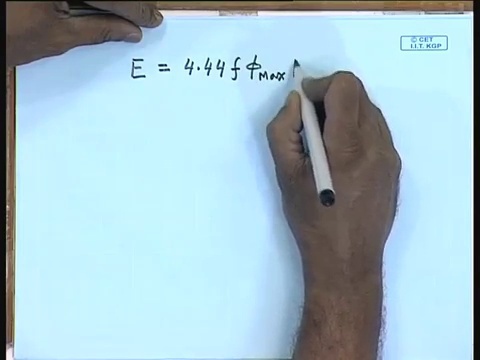 © CET
I.I.T. KGP
E = 4.44 f ϕMax